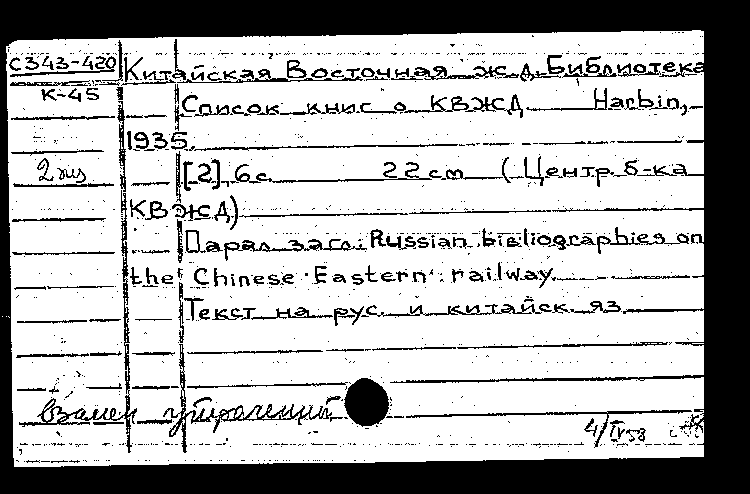 С343-420 Китайская Восточная ж.д. Библиотека
К-45 Список книг о КВЖД Harbin,
1935.
2 экз [2], 6 с. 22 см (Центр. б-ка
КВЖД)
Парал. загл.: Russian bibliographies on
the Chinese Eastern railway.
Текст на рус. и китайск. яз.
Взамен утраченной
4/IV 53